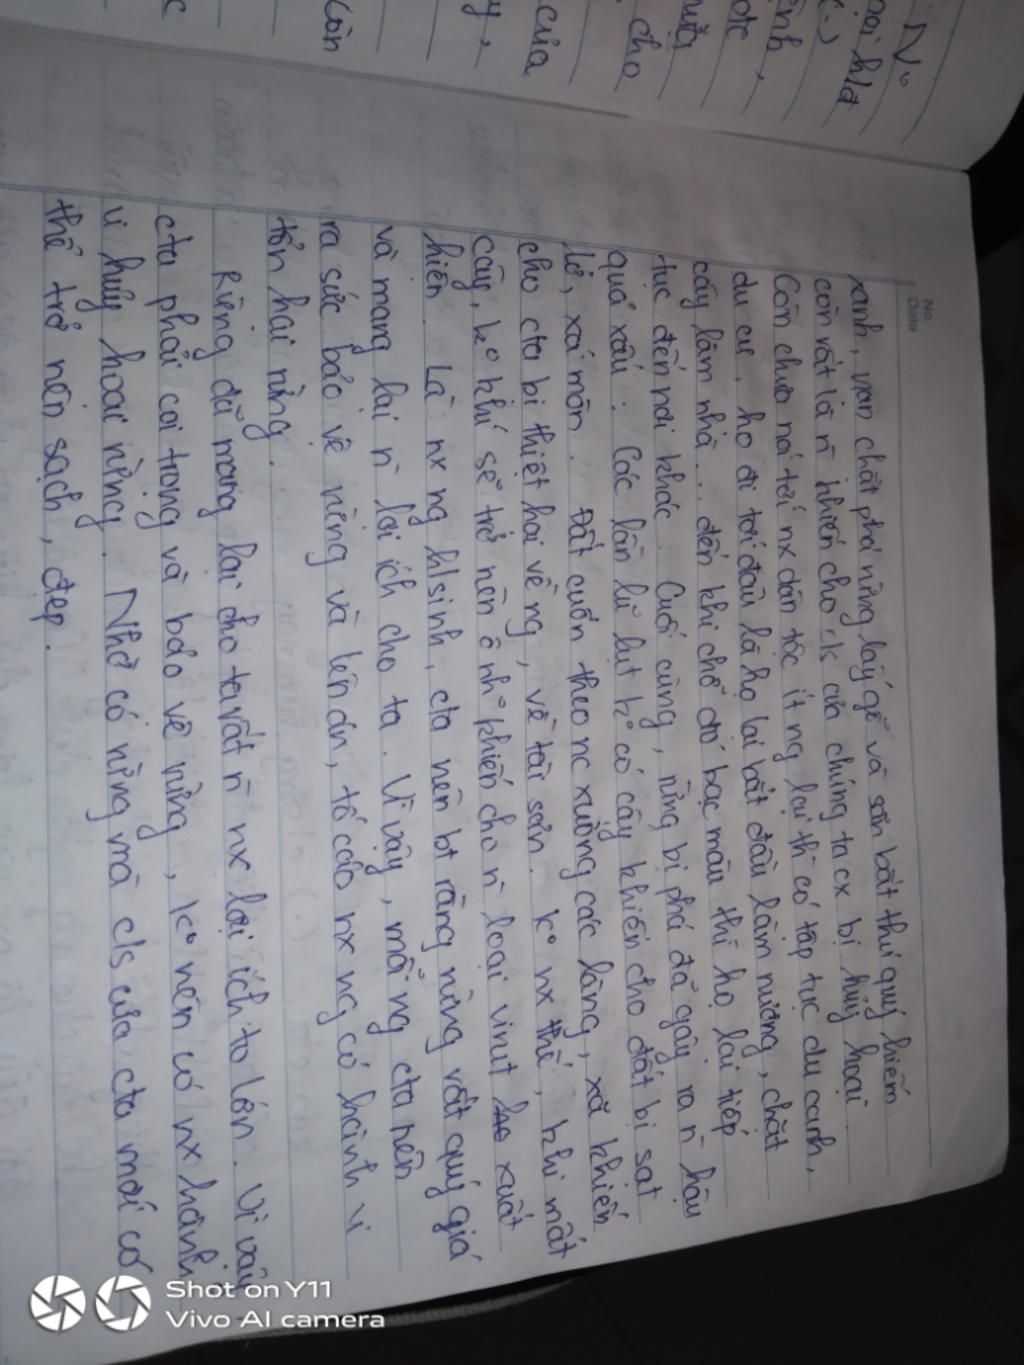 N°
oài hlđ
(-)
ình,
đtc
nữa
cho
của
y,
còn
c
No.
Date
xanh, vạn chặt phá rừng lấy gỗ và săn bắt thú quý hiếm
còn vất là n̄ khiến cho lk của chúng ta cx bị hủy hoại.
Còn chưa nói tới nx dân tộc ít ng lại thì có tập tục du canh,
du cư, họ đi tới đâu là họ lại bắt đầu làm nương, chặt
cây làm nhà... đến khi chỗ đó bạc màu thì họ lại tiếp
tục đến nơi khác. Cuối cùng, rừng bị phá đã gây ra n̄ hậu
quả xấu: Các lần lũ lụt k° có cây khiến cho đất bị sạt
lở, xói mòn. Đất cuốn theo nc xuống các làng, xã khiến
cho cta bị thiệt hại về ng, về tài sản. K° nx thế, khi mất
cây, k° khí sẽ trở nên ô nh° khiến cho n̄ loại virut xuất
hiện. Là nx ng hlsinh, cta nên bt rằng rừng vất quý giá
và mang lại n̄ lợi ích cho ta. Vì vậy, mỗi ng cta nên
ra sức bảo vệ rừng và lên án, tố cáo nx ng có hành vi
tổn hại rừng.
Rừng đã mang lại cho ta vất n̄ nx lợi ích to lớn. Vì vậy,
cta phải coi trọng và bảo vệ rừng, k° nên có nx hành
vi hủy hoại rừng. Nhờ có rừng mà cls của cta mới có
thể trở nên sạch, đẹp.
Shot on Y11
Vivo AI camera